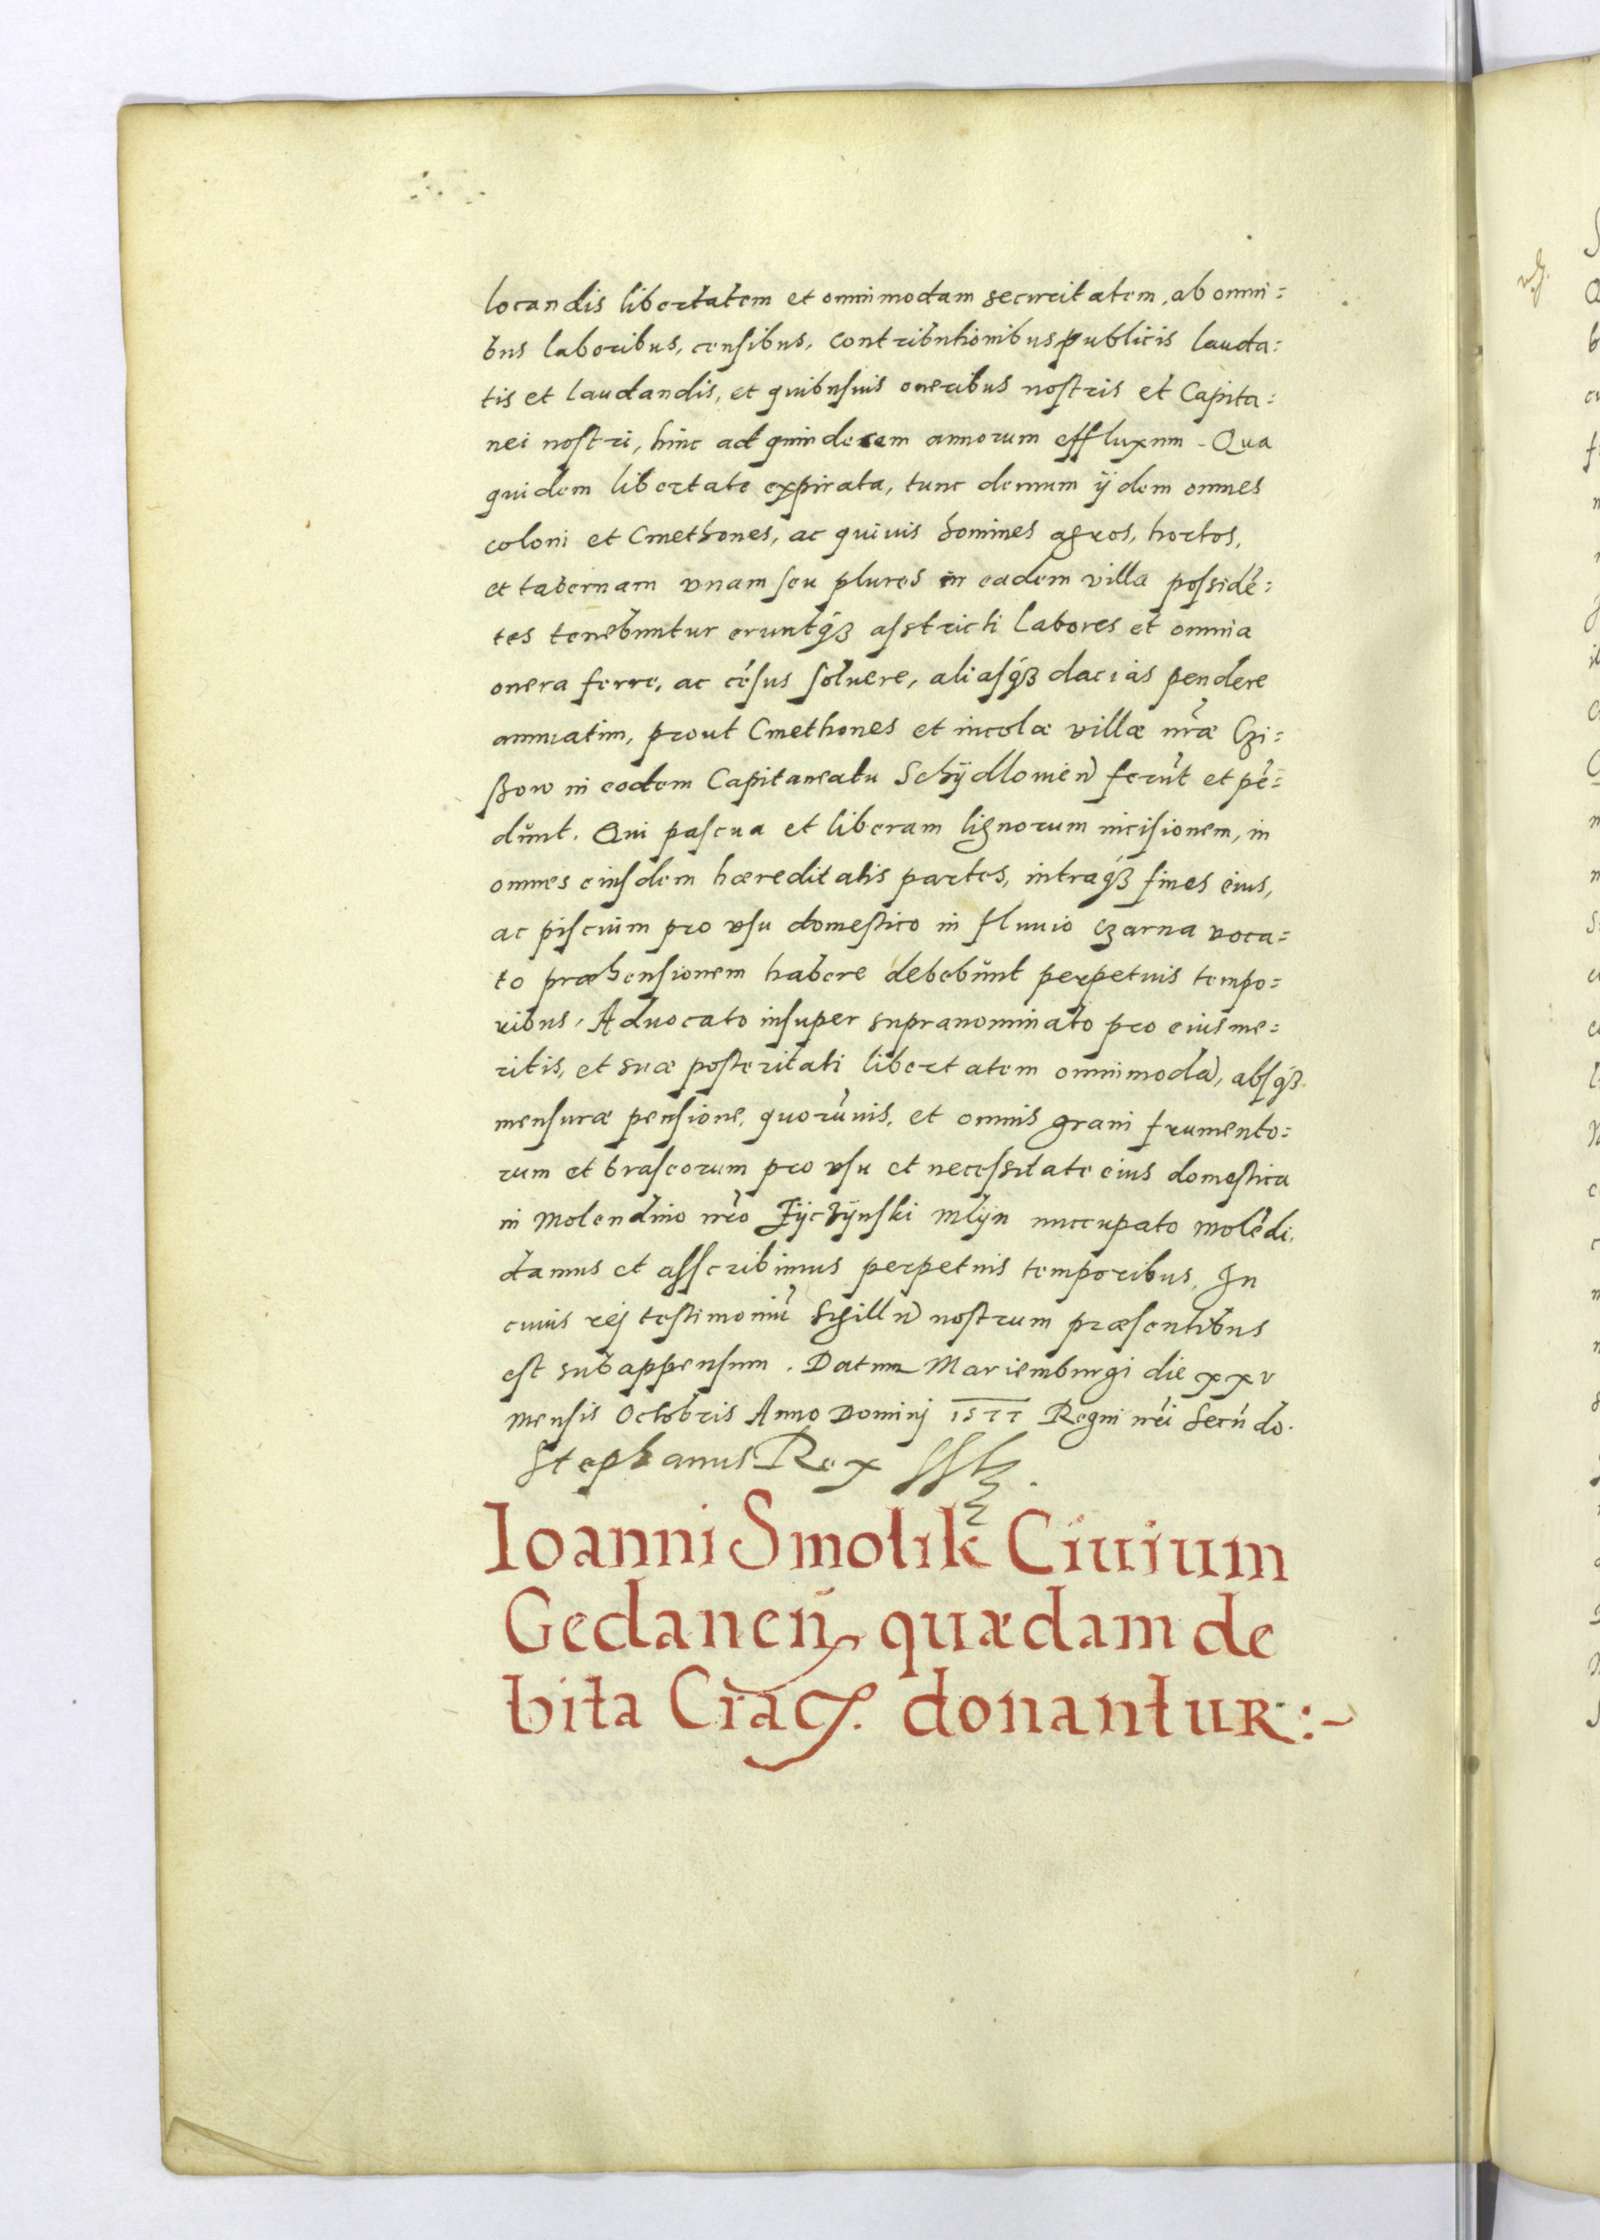 locandis libertatem et omnimodam securitatem, ab omni=
bus laboribus, censibus, contributionibus publicis lauda=
tis et laudandis, et quibusuis oneribus nostris et Capita=
nei nostri, hinc ad quindecem annorum effluxum. Qua
quidem libertate expirata, tunc demum ijdem omnes
coloni et Cmethones, ac quiuis homines agros, hortos,
et tabernam vnam seu plures in eadem villa possidē=
tes tenebuntur eruntq3 astricti labores et omnia
onera ferre, ac cēsus soluere, aliasq3 dacias pendere
annuatim, prout Cmethones et incolæ villæ nr̃æ Czi=
ßow in eodem Capitaneatu Schÿdlouien̄ ferūt et pē=
dūnt. Qui pascua et liberam lignorum incisionem, in
omnes eiusdem hæreditatis partes, intraq3 fines eius,
ac piscium pro vsu domestico in fluuio Czarna voca=
to præhensionem habere debebūnt perpetuis tempo=
ribus. Aduocato insuper supranominato pro eius me=
ritis, et suæ posteritati libertatem omnimodā, absq3
mensuræ pensione, quorūuis, et omnis grani frumento=
rum et braseorum pro vsu et necessitate eius domestica
in Molendino nr̃o Fÿczÿnski mlÿn nuccupato molēdi,
damus et asscribimus perpetuis temporibus. In
cuius rej testimoniū Sigillū nostrum præsentibus
est subappensum. Datum Mariemburgi die xxv
mensis Octobris Anno Dominj 1577 Regni nr̃i Secūdo.
Stephanus Rex
Ioanni Smolik Ciuium
Gedanen̄ quædam de
bita Crac. donantur:-